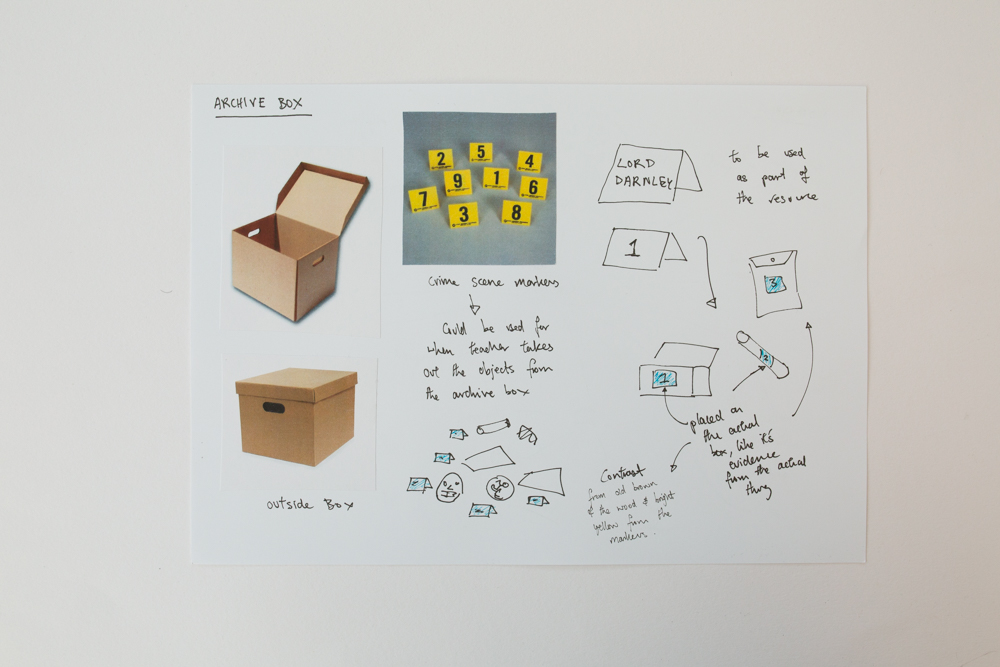 ARCHIVE BOX
outside Box
2
5
4
9
1
6
7
3
8
Crime scene markers
Could be used for
when teacher takes
out the objects from
the archive box
LORD
DARNLEY
to be used
as part of
the resource
1
3
1
2
placed on
the actual
box, like it's
evidence
from the actual
thing
Contrast
from old brown
& the wood & bright
yellow from the
markers.